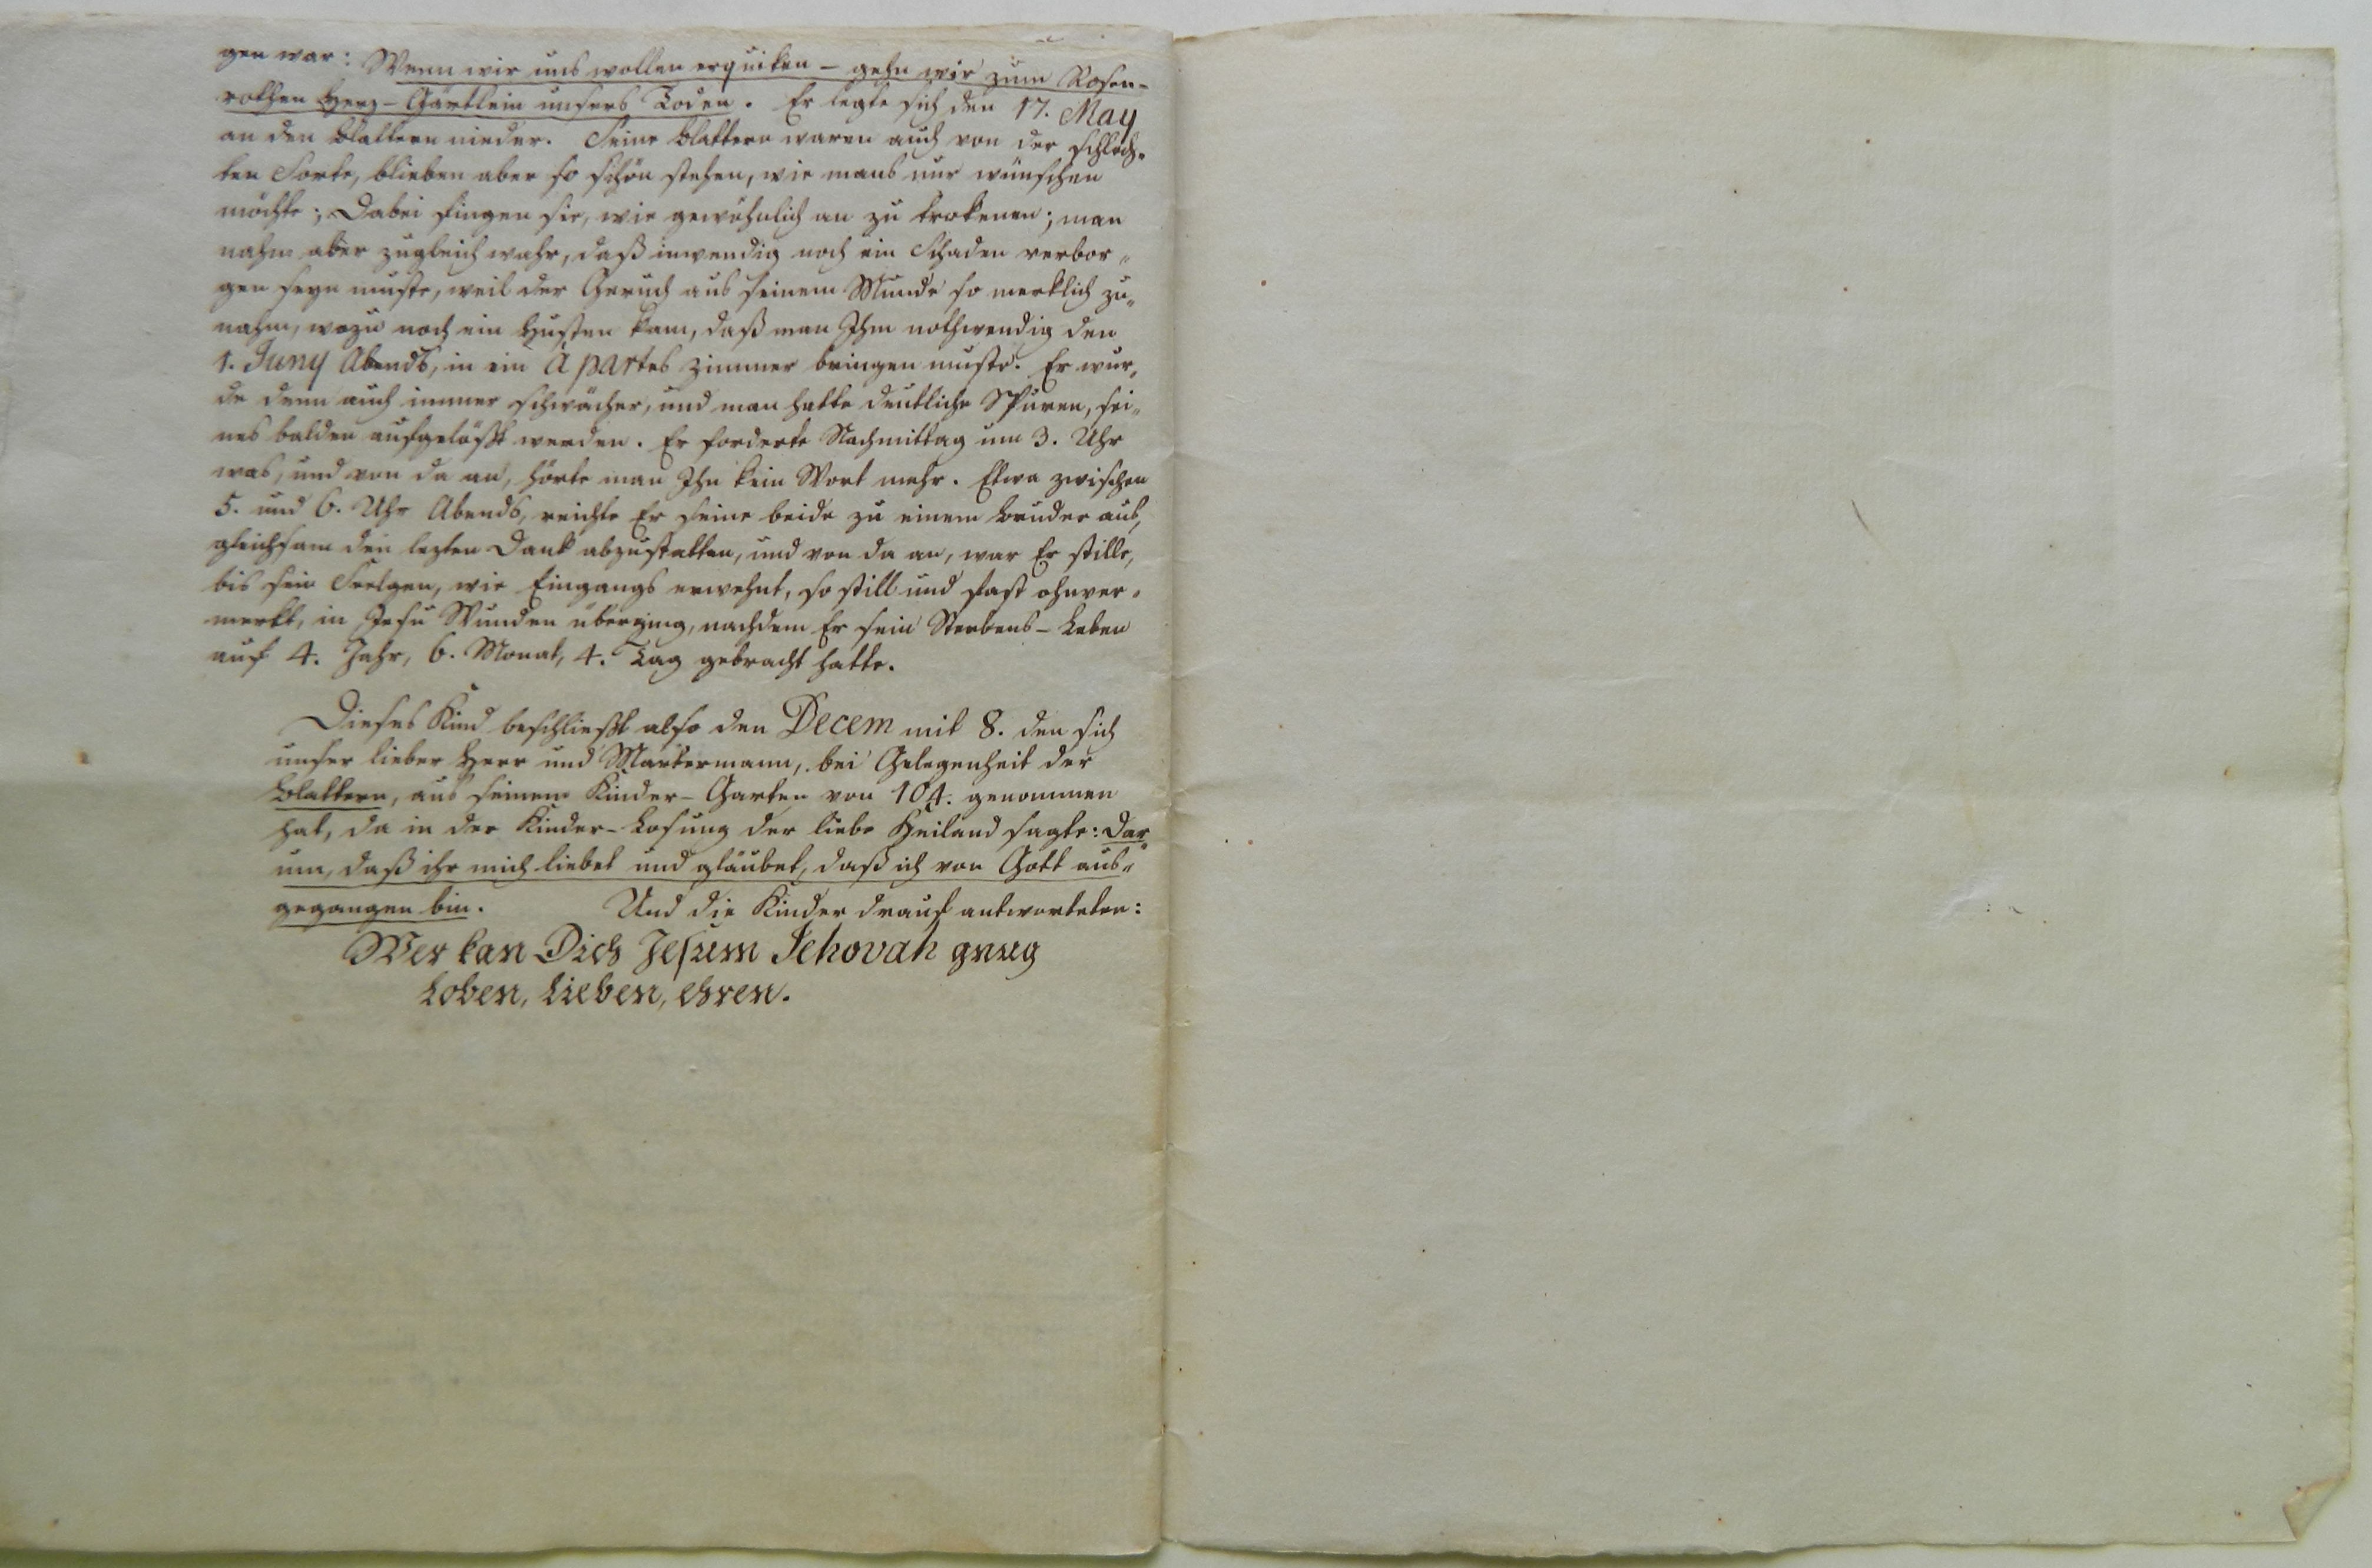 gen war: Wenn wir uns wollen erquiken – gehn wir zum Rosen-
rothen Herz-Gärtlein unsers Todten. Er legte sich den 17. May
an den Blattern nieder. Seine Blattern waren auch von der schlech-
ten Sorte, blieben aber so schön stehen, wie mans nur wünschen
möchte; Dabei fingen sie, wie gewöhnlich an zu trokenen; man
nahm aber zugleich wahr, daß inwendig noch ein Schaden verbor-
gen seyn muste, weil der Geruch aus seinem Munde so merklich zu-
nahm, wozu noch ein Husten kam, daß man Ihn nothwendig den
1. Juny Abends, in ein àpartes Zimmer bringen muste. Er wur-
de denn auch immer schwächer, und man hatte deutliche Spuren, sei-
nes balden aufgelößt werden. Er forderte Nachmittag um 3. Uhr
was, und von da an, hörte man Ihn kein Wort mehr. Etwa zwischen
5. und 6. Uhr Abends, reichte Er seine beide zu einem Bruder aus,
gleichsam den lezten Dank abzustatten, und von da an, war Er stille,
bis sein Seelgen, wie Eingangs erwehnt, so still und fast ohnver-
merkt, in Jesu Wunden überging, nachdem Er sein Sterbens-Leben
auf 4. Jahr, 6. Monat, 4. Tag gebracht hatte.
Dieses Kind beschließt also den Decem mit 8. den sich
unser lieber Herr und Martermann, bei Gelegenheit der
Blattern, aus seinem Kinder-Garten von 104. genommen
hat, da in der Kinder-Losung der liebe Heiland sagte: Dar-
um, daß ihr mich liebet und gläubet, daß ich von Gott aus-
gegangen bin. Und die Kinder drauf antworteten:
Wer kan Dich Jesum Jehovah gnug
Loben, Lieben, ehren.